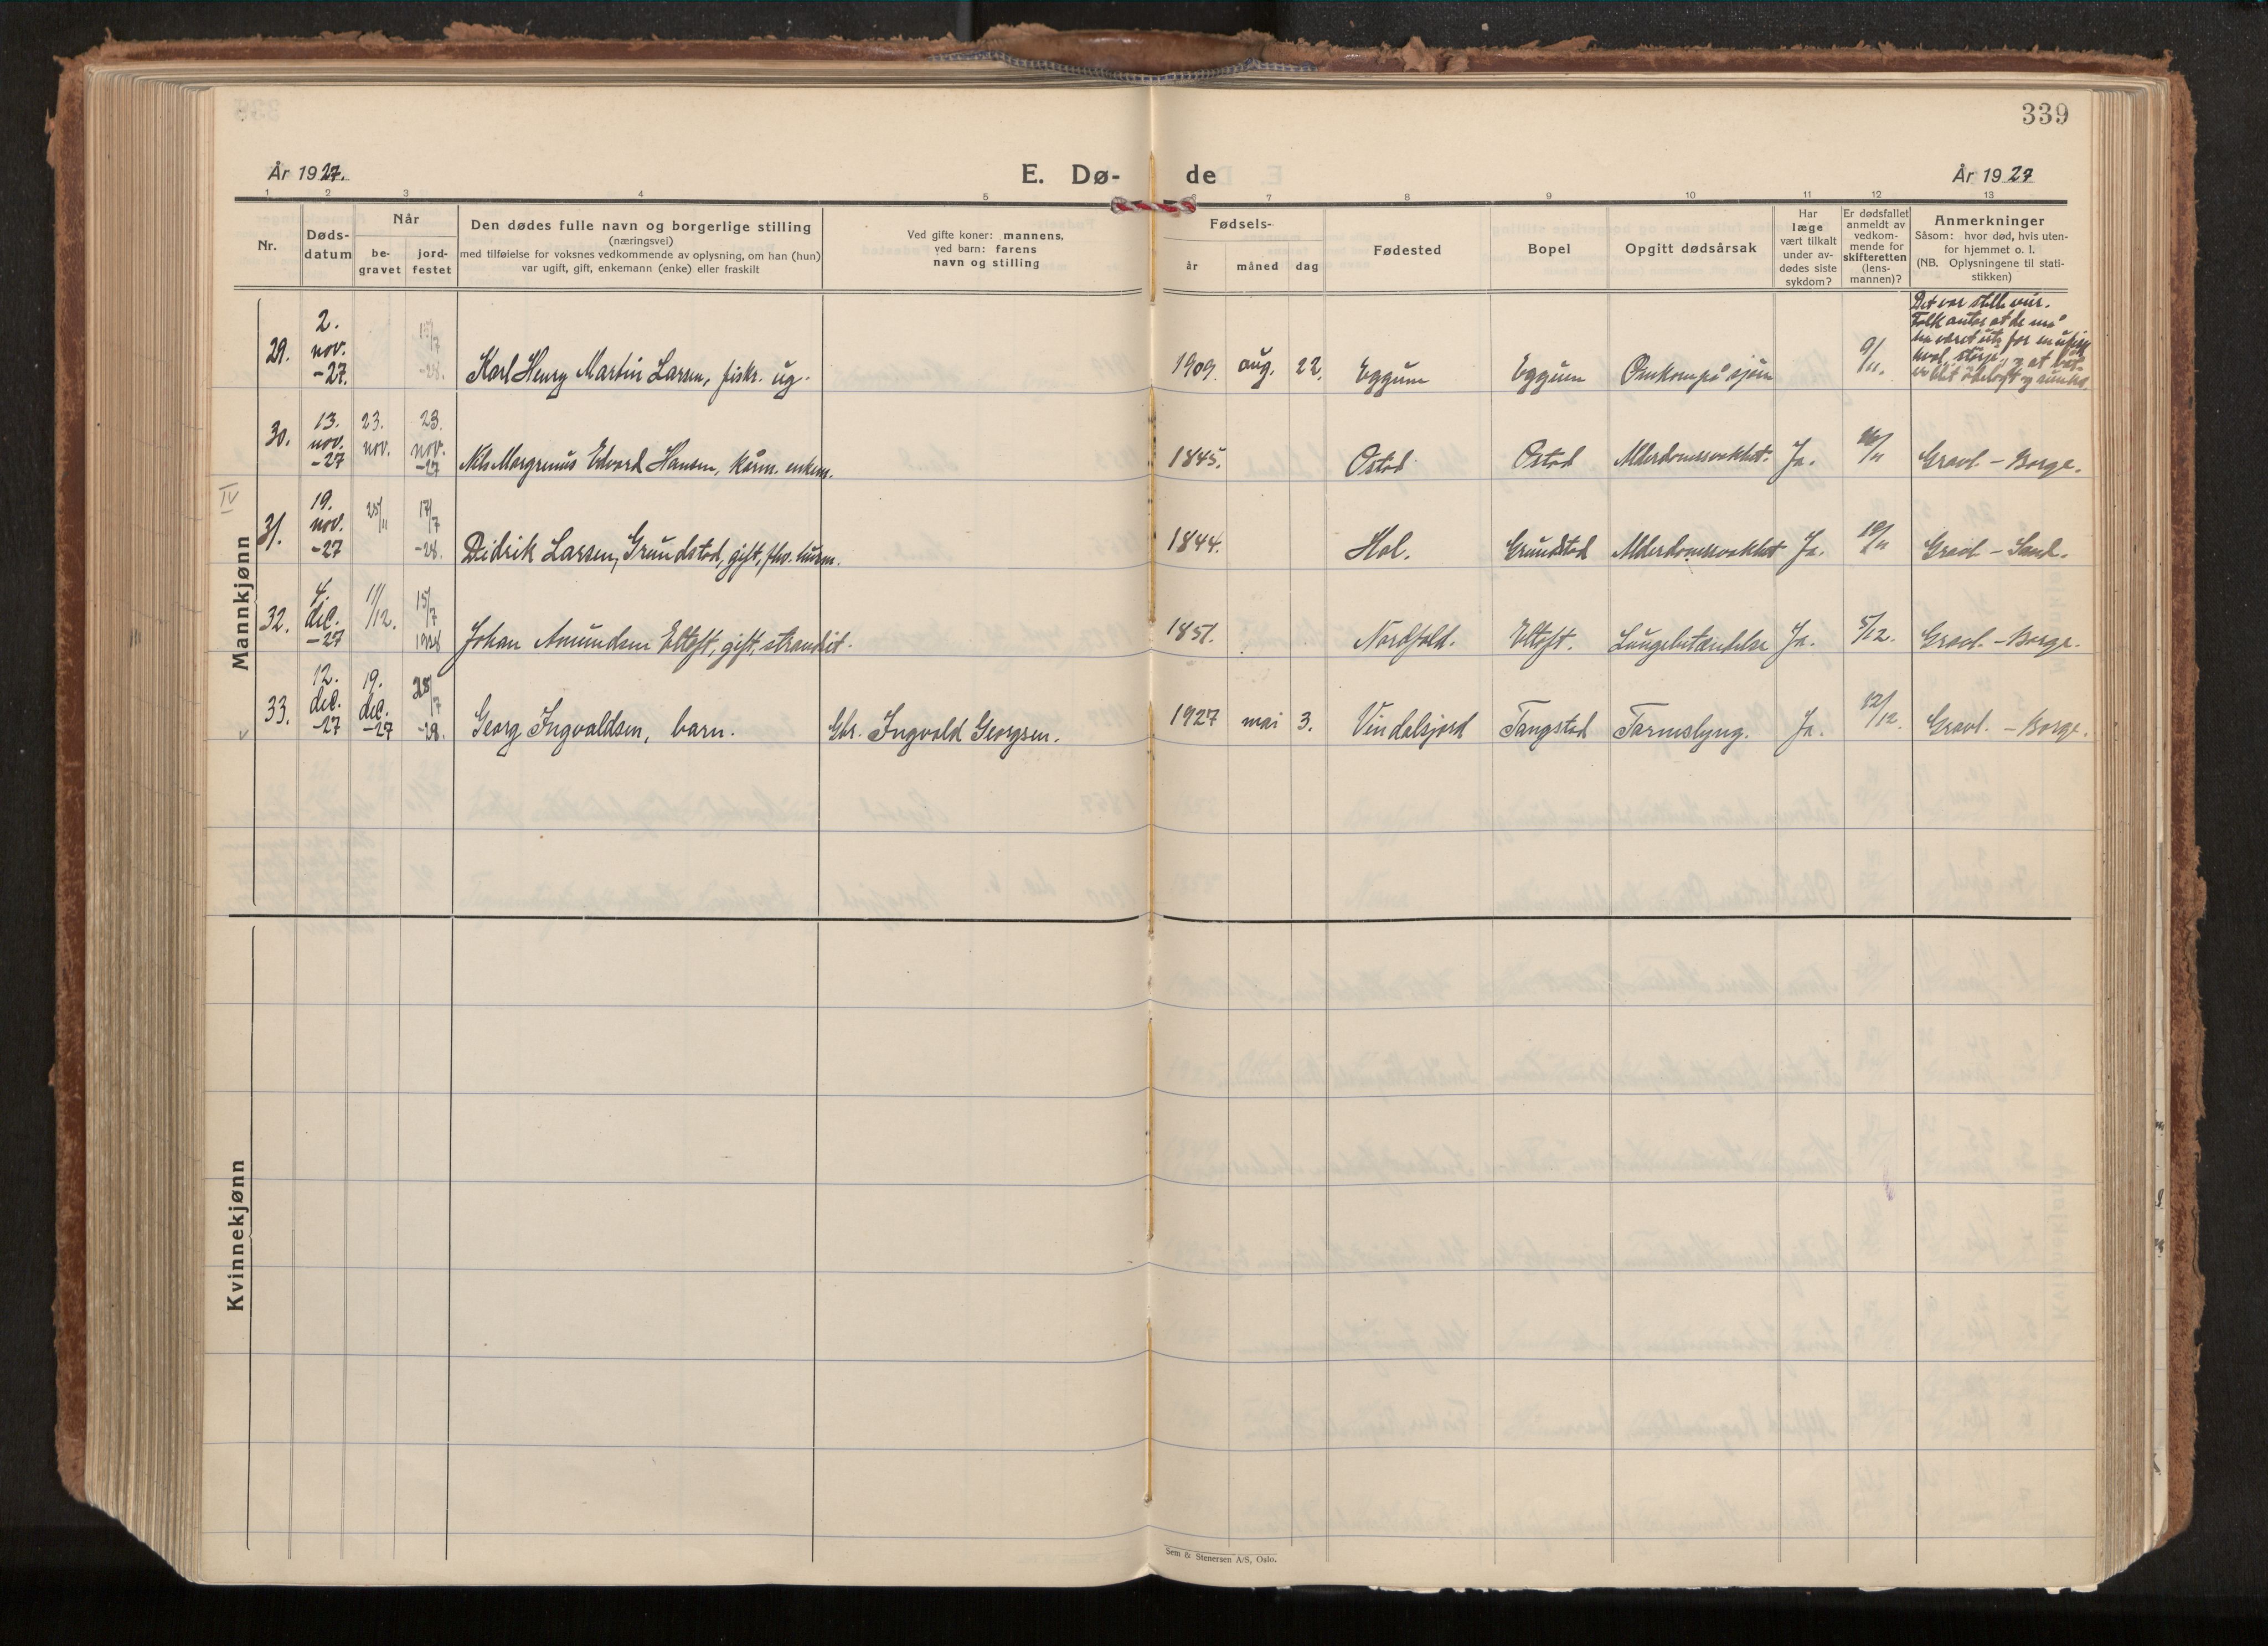 339
År 1927.
E. Dø-
de
År 1927
1 2 3 4 5 6 7 8 9 10 11 12 13
Nr.
Døds-
datum
Når
be-
gravet
jord-
festet
Den dødes fulle navn og borgerlige stilling
(næringsvei)
med tilføielse for voksnes vedkommende av oplysning, om han (hun)
var ugift, gift, enkemann (enke) eller fraskilt
Ved gifte koner: mannens,
ved barn: farens
navn og stilling
Fødsels-
år
måned
dag
Fødested
Bopel
Opgitt dødsårsak
Har
læge
vært tilkalt
under av-
dødes siste
sykdom?
Er dødsfallet
anmeldt av
vedkom-
mende for
skifteretten
(lens-
mannen)?
Anmerkninger
Såsom: hvor død, hvis uten-
for hjemmet o. l.
(NB. Oplysningene til stati-
stikken)
Mannkjønn
29. 2. nov. -27. /7 -28. Karl Henry Martin Larsen, fisker. ug. 1909. aug. 22. Eggum Eggum Omkom på sjøen 9/11.
Det var stille veir.
Folk antar at de må
ha været ute for en
hval, størje, og at båt-
en blit og sunket.
30. 13. nov. -27 23. nov. 23. nov. -27 Nils Edvard Hansen, kårm. enkem. 1845. Ostad Ostad Alderdomssvakhet. Ja. /11 Gravl. - Borge.
IV
31. 19. nov. -27 25/11 17/7 -28. Didrik Larsen, Grundstad, gift, fhv. 1844. Hol. Grundstad Alderdomssvakhet Ja. 19/11 Gravl. - Sand.
32. 4. dec. -27 11/12. 15/7 1928 Johan Amundsen Eltoft, gift, strandsit. 1851. Nordfold. Eltoft. Lungebetændelse Ja. 5/12. Gravl. - Borge.
v
33. 12. dec. -27 19. dec. -27 /7 -28. Georg Ingvaldsen, barn. Gbr. Ingvald Georgsen. 1927 mai 3. Vindalsjord Tangstad Tarmslyng. Ja. 12/12. Gravl. - Borge.
Kvinnekjønn
Sem & Stenersen A/S, Oslo.